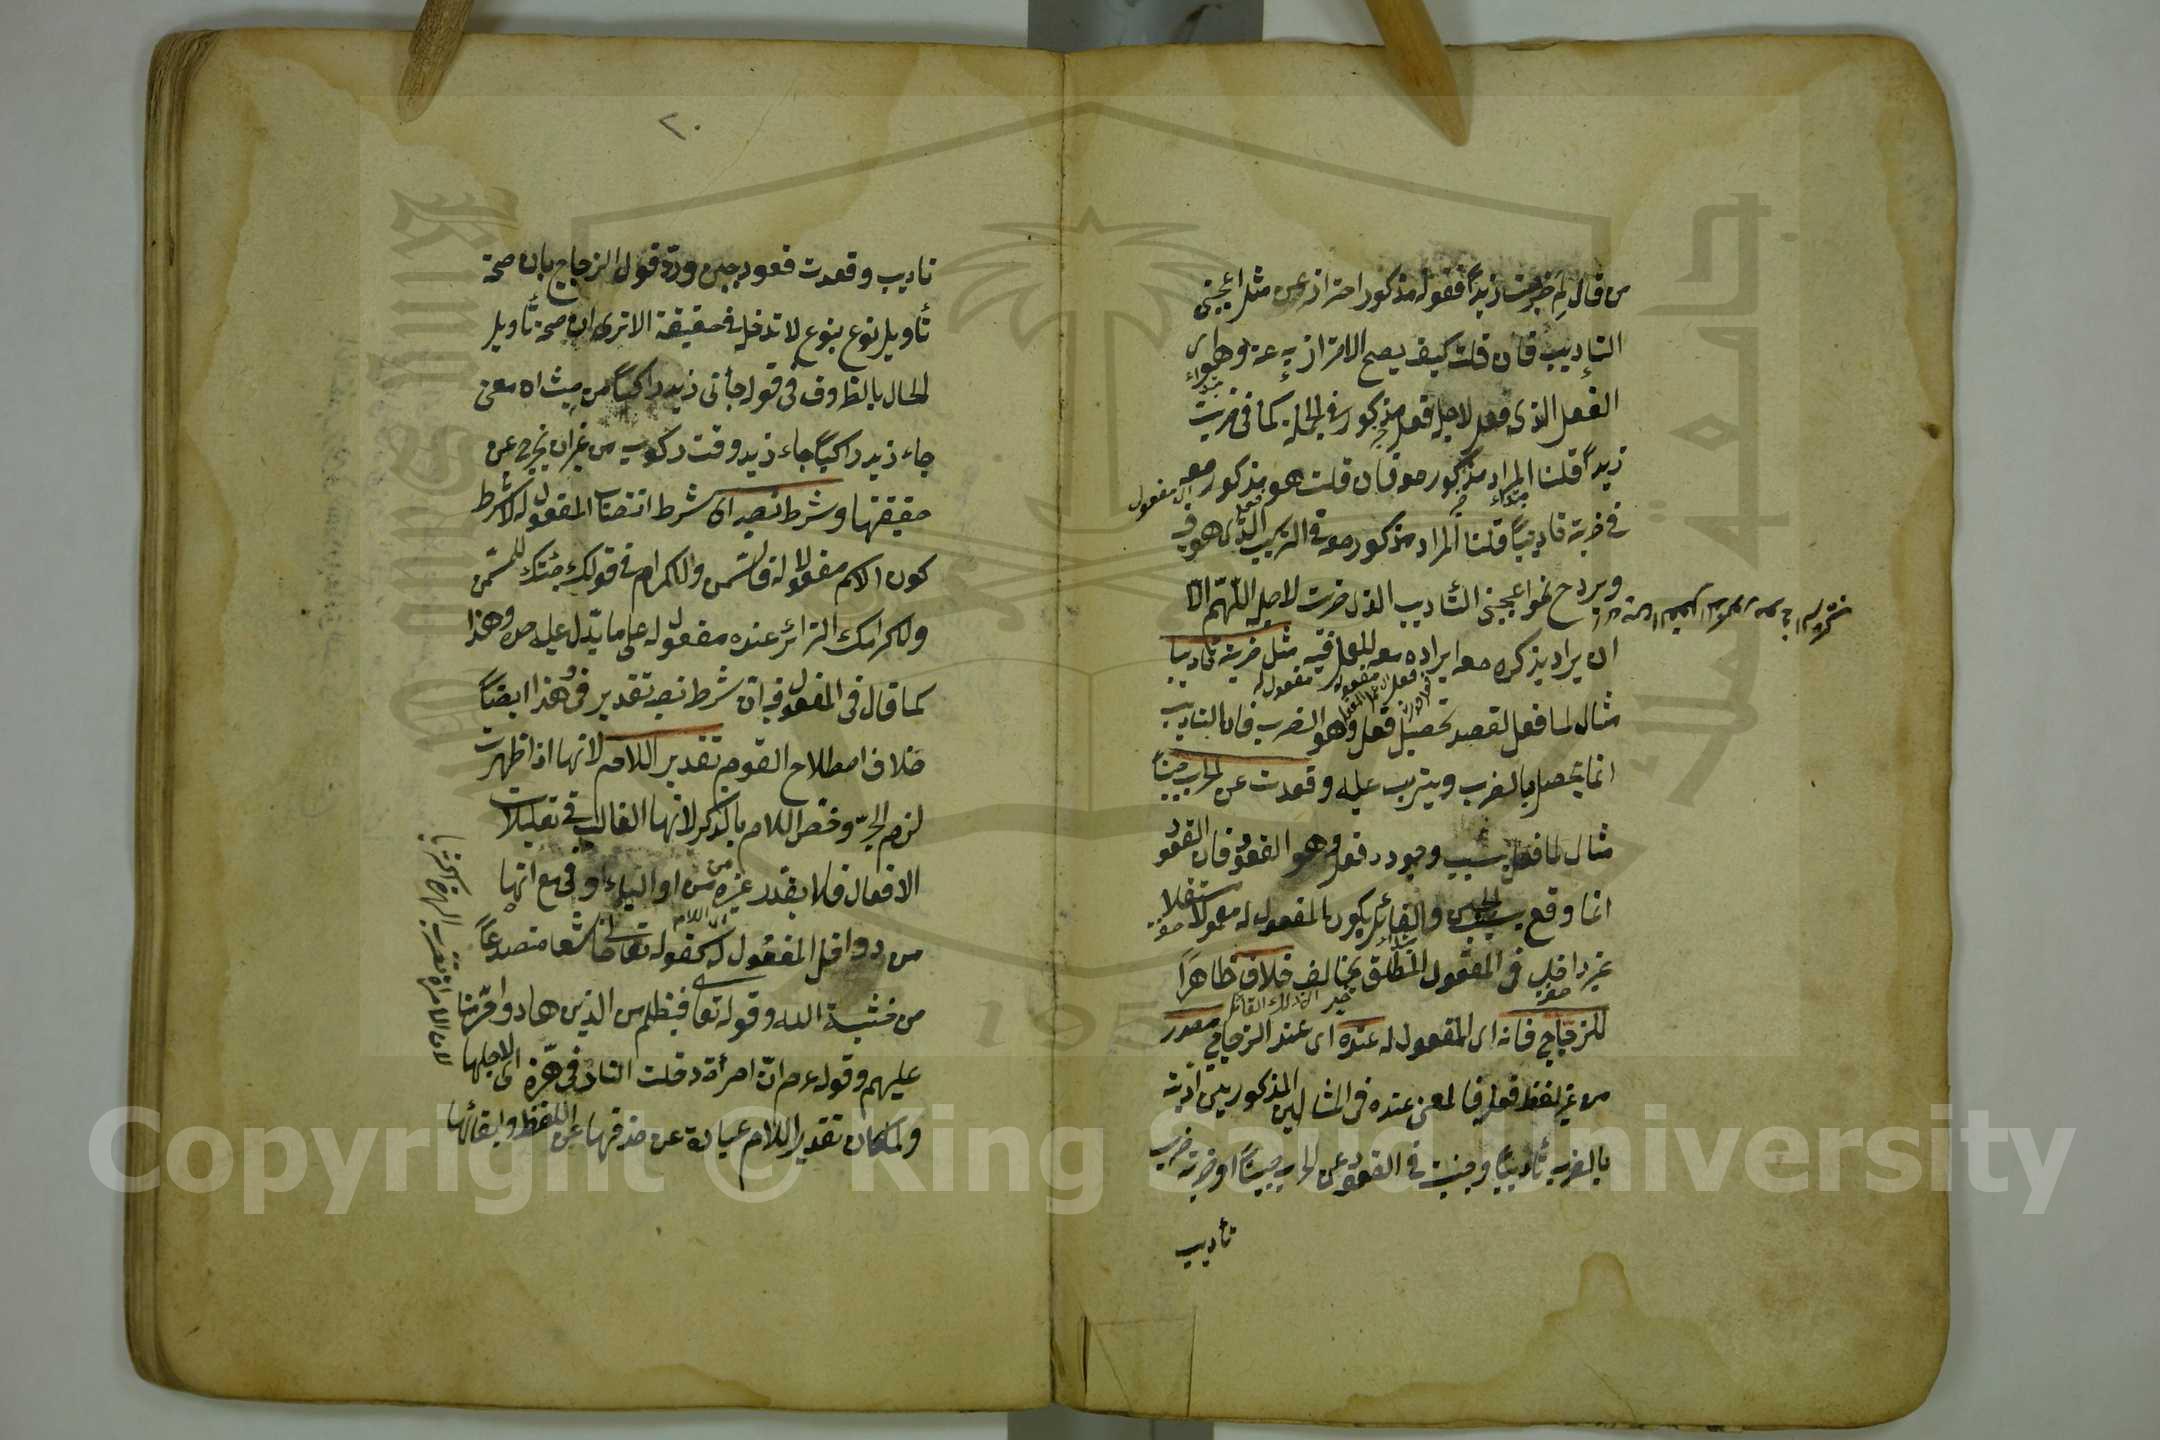 من قال لم ضربت زيدا فقوله مذكور احتراز عن مثل اعجبنى
التاديب فان قلت كيف يصح الاحتراز به عنه وهو اى
الفعل الذى فعل لاجله فعل مذكور فى الجملة كما فى ضربت
زيدا قلنا المراد مذكور معه فان قلت هو مذكور معه
فى ضربته تاديبا قلنا المراد مذكور معه فى التركيب الذى هو فيه
ويرد ح نحو اعجبنى التأديب الذى ضربت لاجله اللهم الا
ان يراد بذكره معه ايراده معه للعمل فيه مثل ضربته تاديبا
مثال لما فعل لقصد تحصيله فعل وهو الضرب فان التاديب
انما يحصل بالضرب ويترتب عليه وقعدت عن الحرب جبنا
مثال لما فعل بسبب وجوده فعل وهو القعود فان القعود
انما وقع بسبب الجبن والقائل بكون المفعول له معمولا مستقلا
غير داخل فى المفعول المطلق يخالف خلافا ظاهرا
للزجاج فانه اى المفعول له عنده اى عند الزجاج مصدر
من غير لفظ فعله فالمعنى عنده فى المثالين المذكورين ادبته
بالضرب تأديبا وجبنت فى القعود عن الحرب جبنا او ضربته ضرب
تأديب
٢٠
تاديب وقعدت قعود جبن ورد قول الزجاج بان صحة
تأويل نوع بنوع لا تدخله فى حقيقته الا ترى ان صحة تأويل
الحال بالظرف فى قوله جأنى زيد راكبا من حيث ان معنى
جاء زيد راكبا جاء زيد وقت ركوبه من غير ان تخرج عن
حقيقتها وشرط نصبه اى شرط انتصاب المفعول له لا شرط
كون الاسم مفعولا له فالسمن والاكرام فى قولك جئتك للسمن
ولاكرامك الزائر عنده مفعول له على ما يدل عليه حده وهذا
كما قال فى المفعول فيه ان شرط نصبه تقدير فى وهذا ايضا
خلاف اصطلاح القوم تقدير اللام لانها اذا ظهرت
لزم الجر وخص اللام بالذكر لانها الغالب فى تعليلات
الافعال فلا يقدر غيره من من او الباء او فى مع انها
من دواخل المفعول له كقوله تعالى خاشعا متصدعا
من خشية الله وقوله تعا فبظلم من الذين هادوا حرمنا
عليهم وقوله عم ان امرأة دخلت النار فى هرة اى لاجلها
ولما كان تقدير اللام عبارة عن حذفها عن اللفظ وابقائها